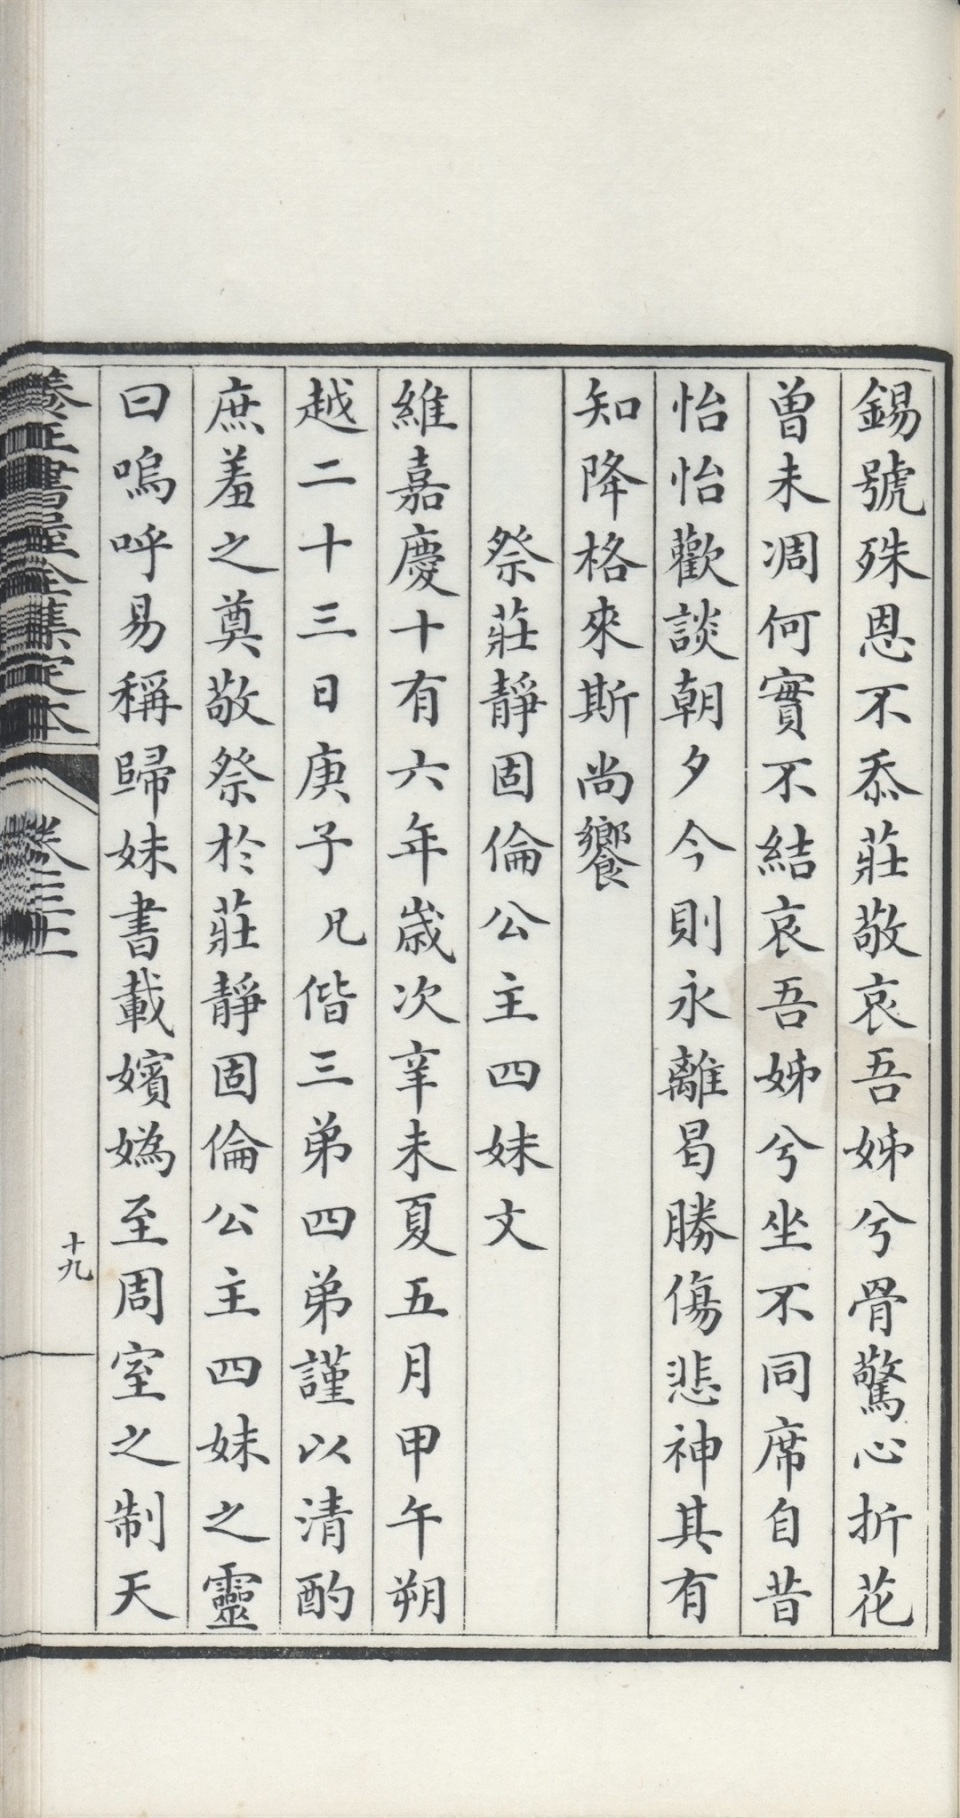 錫號殊恩不忝莊敬哀吾姊兮骨驚心折花
曾未凋何實不結哀吾姊兮坐不同席自昔
怡怡歡談朝夕今則永離曷勝傷悲神其有
知降格來斯尚饗
祭莊靜固倫公主四妹文
維嘉慶十有六年歲次辛未夏五月甲午朔
越二十三日庚子兄偕三弟四弟謹以清酌
庶羞之奠敬祭於莊靜固倫公主四妹之靈
曰嗚呼易稱歸妹書載嬪嬀至周室之制天
養正書屋全集定本
卷三上
十九